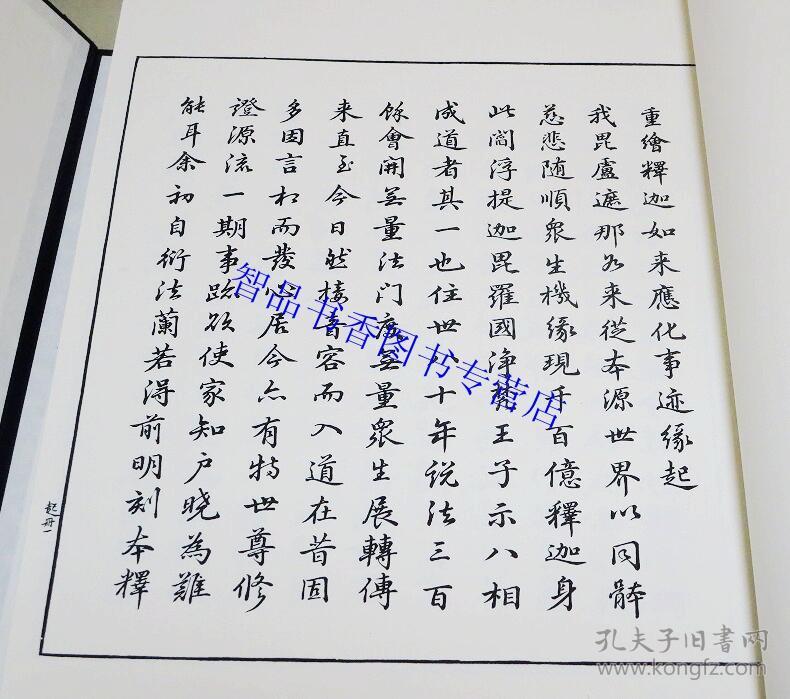 重繪釋迦如来應化事迹緣起
我毘盧遮那如来從本源世界以同體
慈悲随順衆生機緣現千百億釋迦身
此閻浮提迦毘羅國淨飯王子示八相
成道者其一也住世八十年説法三百
餘會開無量法門度無量衆生展轉傳
来直至今日然接音容而入道在昔固
多因言相而發心居今亦有特世尊修
證源流一期事跡欲使家知户曉為難
能耳余初自衍法蘭若得前明刻本釋
起册一
智品书香图书专营店
孔夫子旧书网
www.kongfz.com